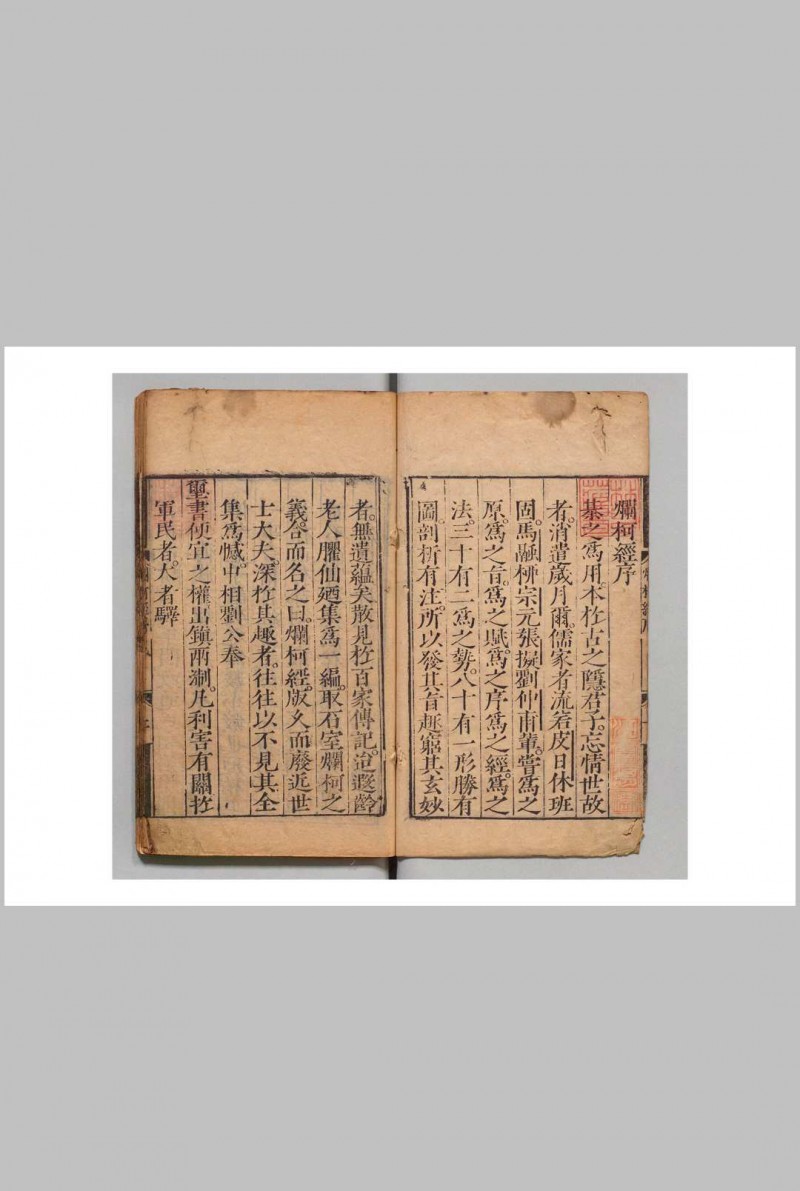 爛柯經序
棊之爲用。本於古之隱君子。忘情世故
者。消遣歲月爾。儒家者流。若皮日休班
固。馬融栁宗元張擬劉仲甫輩。嘗爲之
原。爲之旨。爲之賦。爲之序。爲之經。爲之
法。三十有二爲之勢。八十有一形勝有
圖。剖析有注。所以發其旨趣。窮其玄妙
者。無遺蘊矣。散見於百家傳記。迨遐齡
老人臞仙廼集爲一編。取石室爛柯之
義。合而名之曰。爛柯經。版久而廢。近世
士大夫。深於其趣者。往往以不見其全
集爲憾。中相劉公奉
璽書便宜之權。出鎮兩淛。凡利害有關於
軍民者。大者驛